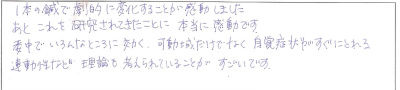 1本の鍼で劇的に変化することが感動しました
あと これを研究されてきたことに 本当に感動です。
委中でいろんなところに効く、可動域だけでなく自覚症状がすぐにとれる
運動性など 理論も考えられていることが すごいです。